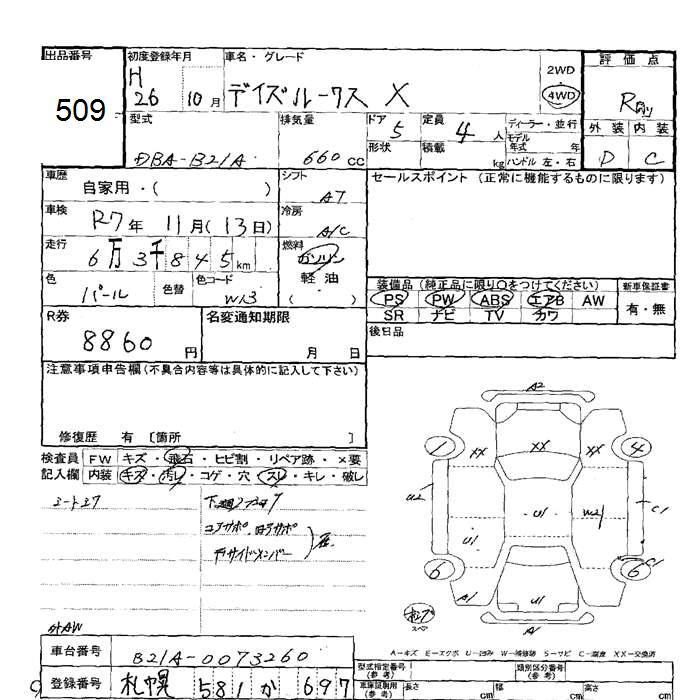 出品番号 初度登録年月 車名・グレード 評価点
509 H 26 10月 デイズルークス X 2WD 4WD R
型式 排気量 ドア 5 定員 4人 ディーラー・並行 外装 内装
DBA-B21A 660cc 形状 積載 kg モデル年式 年 ハンドル 左・右 D C
車歴 自家用・( ) シフト AT セールスポイント (正常に機能するものに限ります)
車検 R7年 11月(13日) 冷房 A/C
走行 6万3千845km 燃料 ガソリン 軽油 ( )
色 パール 色替 色コード W13
装備品 (純正品に限り○をつけてください) 新車保証書
PS PW ABS エアB AW 有・無
SR ナビ TV カワ
R券 8860円 名変通知期限 月 日 後日品
注意事項申告欄(不具合内容等は具体的に記入して下さい)
修復歴 有 〔箇所 〕
検査員 FW キズ・飛石・ヒビ割・リペア跡・×要
記入欄 内装 キズ・汚レ・コゲ・穴・スレ・キレ・破レ
A2
1 XX XX XX 4
U2 U1 W21 C1
U1 C1
6 6
A1 U1
スペア A
A-キズ E-エクボ U-凹み W-補修跡 S-サビ C-腐食 XX-交換済
外AW
車台番号 B21A-0073260
登録番号 札幌 581 か 697
型式指定番号 (参考) 類別区分番号 (参考)
車庫証明用 (参考) 長さ cm 幅 cm 高さ cm